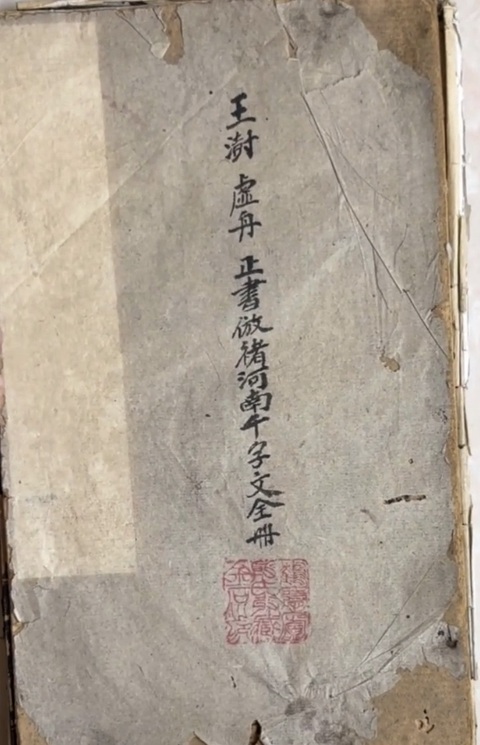 王澍 虛舟 正書倣褚河南千字文全冊